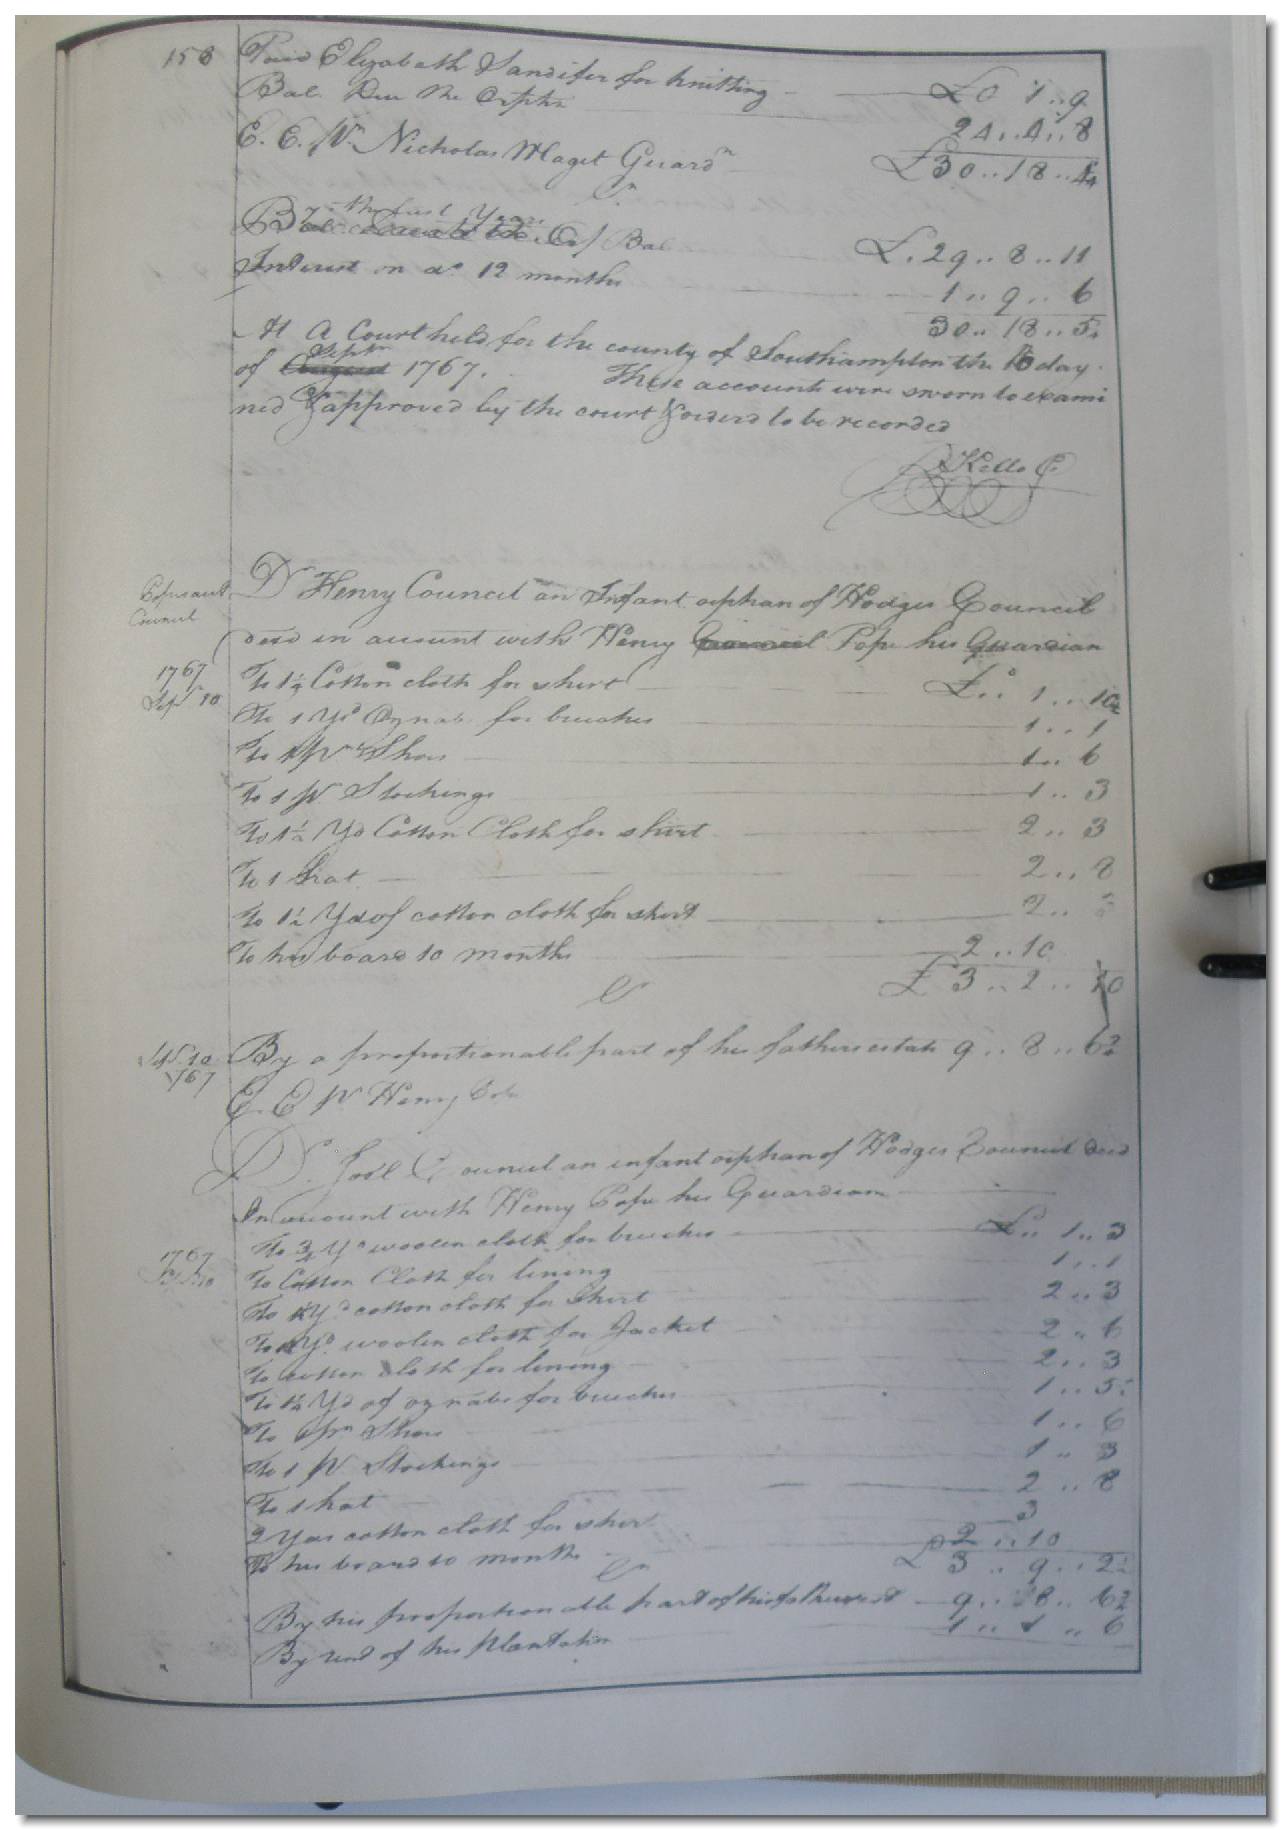 158 Paid Elizabeth Sandifer for knitting £0 1..9
Bal. Due the Orphn 24..4..8
E. E. Pr. Nicholas Maget Guardn £30..18..4
Cr
By the last Years a/ Bal £.29..8..11
Interest on do 12 months 1..9..6
30..18..5
At a Court held for the county of Southampton the day
of August Septr 1767. These accounts were sworn to exami
ned & approved by the court & orderd to be recorded
R Kello C.
Popes acct
Council
Dr Henry Council an Infant orphan of Hodges Council
decd in account with Henry Council Pope his Guardian
1767
Sepr 10
To 1¼ Cotton cloth for shirt £.. 1..10½
To 1 Yd Oznab. for breeches 1..1
To 1 Pr Shoes 1..6
To 1 Pr Stockings 1..3
To 1½ Yd Cotton Cloth for shirt 2..3
To 1 hat 2..8
To 1½ Yd of cotton cloth for shirt 2..3
To his board 10 months 2..10
£3..2..10
Cr
Sepr 10
1767
By a proportionable part of his fathers estate 9..8..6¾
E. E. Pr Henry Pope
Dr. Joel Council an infant orphan of Hodges Council decd
In account with Henry Pope his Guardian
1767
Sepr 10
To ¾ Yd woolen cloth for breeches £.. 1..3
To Cotton Cloth for lining 1..1
To Yd cotton cloth for Shirt 2..3
To Yd. woolen cloth for Jacket 2..6
To cotton cloth for lining 2..3
To 1½ Yd of oznabs for breeches 1..5
To Pr Shoes 1..6
To 1 Pr Stockings 1..3
To 1 hat 2..8
2 Yds cotton cloth for shirt 3
To his board 10 months 2..10
£3..9..2½
Cr
By his proportionable part of his fathers est 9..8..6¾
By rent of his Plantation 1..1..6